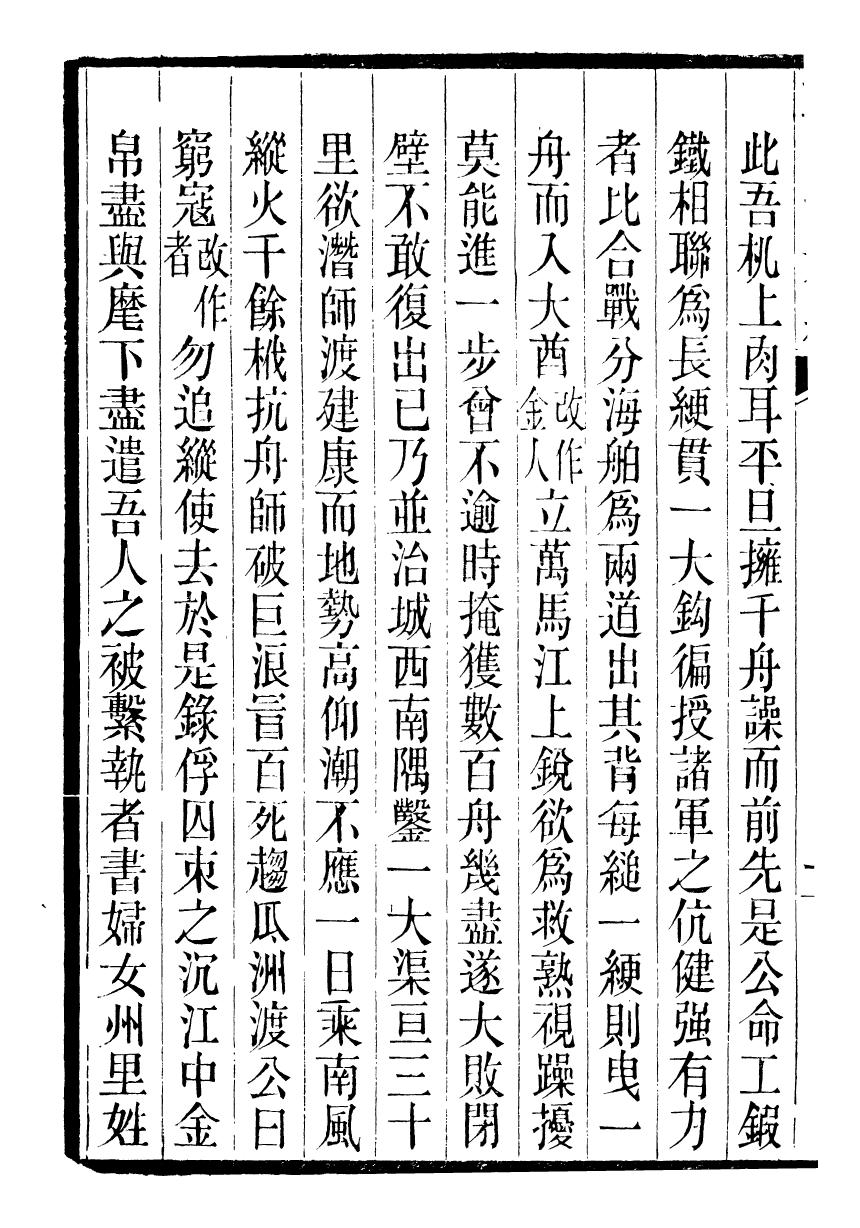 此吾机上肉耳平旦擁千舟譟而前先是公命工鍜
鐵相聯爲長綆貫一大鈎徧授諸軍之伉健强有力
者比合戰分海舶爲兩道出其背每縋一綆則曳一
舟而入大酋改作金人立萬馬江上銳欲爲救熟視躁擾
莫能進一步曾不逾時掩獲數百舟幾盡遂大敗閉
壁不敢復出已乃並治城西南隅鑿一大渠亘三十
里欲潛師渡建康而地勢高仰潮不應一日乘南風
縱火千餘栰抗舟師破巨浪冒百死趨瓜洲渡公曰
窮寇改作者勿追縱使去於是錄俘囚朿之沉江中金
帛盡與麾下盡遣吾人之被繫執者書婦女州里姓